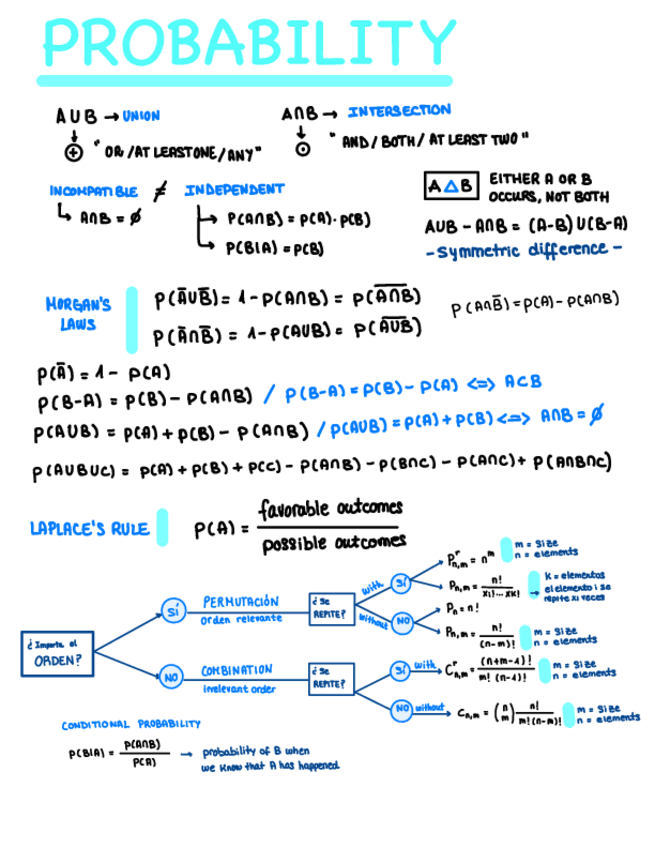 PROBABILITY
A∪B → UNION
⊕ "OR/AT LEAST ONE/ANY"
A∩B → INTERSECTION
⊙ "AND/BOTH/AT LEAST TWO"
INCOMPATIBLE ≠ INDEPENDENT
↳ A∩B = ∅
↳ P(A∩B) = P(A)·P(B)
↳ P(B|A) = P(B)
A △ B EITHER A OR B
OCCURS, NOT BOTH
A∪B - A∩B = (A-B)∪(B-A)
- symmetric difference -
MORGAN'S
LAWS
P(A̅∪B̅) = 1 - P(A∩B) = P(A̅∩̅B̅)
P(A̅∩B̅) = 1 - P(A∪B) = P(A̅∪̅B̅)
P(A∩B̅) = P(A) - P(A∩B)
P(A̅) = 1 - P(A)
P(B-A) = P(B) - P(A∩B) / P(B-A) = P(B) - P(A) <=> A⊂B
P(A∪B) = P(A) + P(B) - P(A∩B) / P(A∪B) = P(A) + P(B) <=> A∩B = ∅
P(A∪B∪C) = P(A) + P(B) + P(C) - P(A∩B) - P(B∩C) - P(A∩C) + P(A∩B∩C)
LAPLACE'S RULE
P(A) = favorable outcomes / possible outcomes
¿Importa el
ORDEN?
SÍ
PERMUTACIÓN
orden relevante
¿Se
REPITE?
with SÍ
P^r n,m = n^m
m = size
n = elements
P n,m = n! / X1!...XK!
K = elementos
el elemento i se
repite xi veces
without NO
Pn = n!
P n,m = n! / (n-m)!
m = size
n = elements
NO
COMBINATION
irrelevant order
¿Se
REPITE?
SÍ with C^r n,m = (n+m-1)! / m!(n-1)!
m = size
n = elements
NO without C n,m = (n m) n! / m!(n-m)!
m = size
n = elements
CONDITIONAL PROBABILITY
P(B|A) = P(A∩B) / P(A) → probability of B when
we know that A has happened